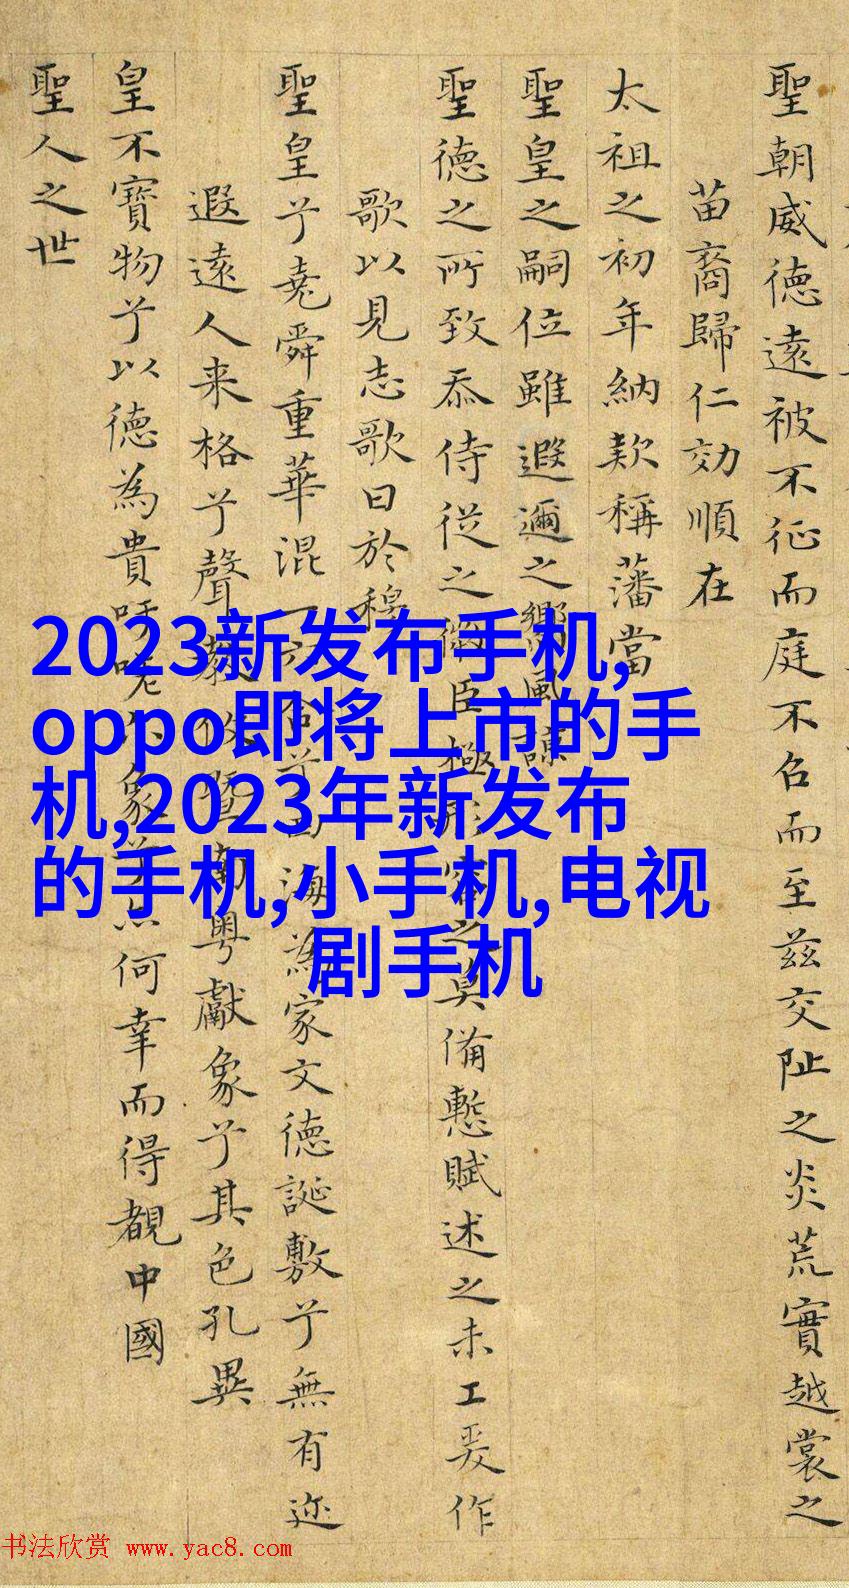 聖朝威德遠被不征而庭不召而至茲交阯之炎荒實越裳之
苗裔歸仁効順在
太祖之初年納款稱藩當
聖皇之嗣位雖遐邇之嚮風諒
聖德之所致忝侍從之微臣極形容之莫備慙賦述之未工爰作
歌以見志歌曰於穆
聖皇兮堯舜重華混一六合兮四海為家文德誕敷兮無有迩
遐遠人来格兮聲教攸暨南粤獻象兮其色孔異
皇不寶物兮以德為貴吁嗟小象兮亦何幸而得覩中國
聖人之世
2023新发布手机,
oppo即将上市的手
机,2023年新发布
的手机,小手机,电视
剧手机
书法欣赏 www.yac8.com